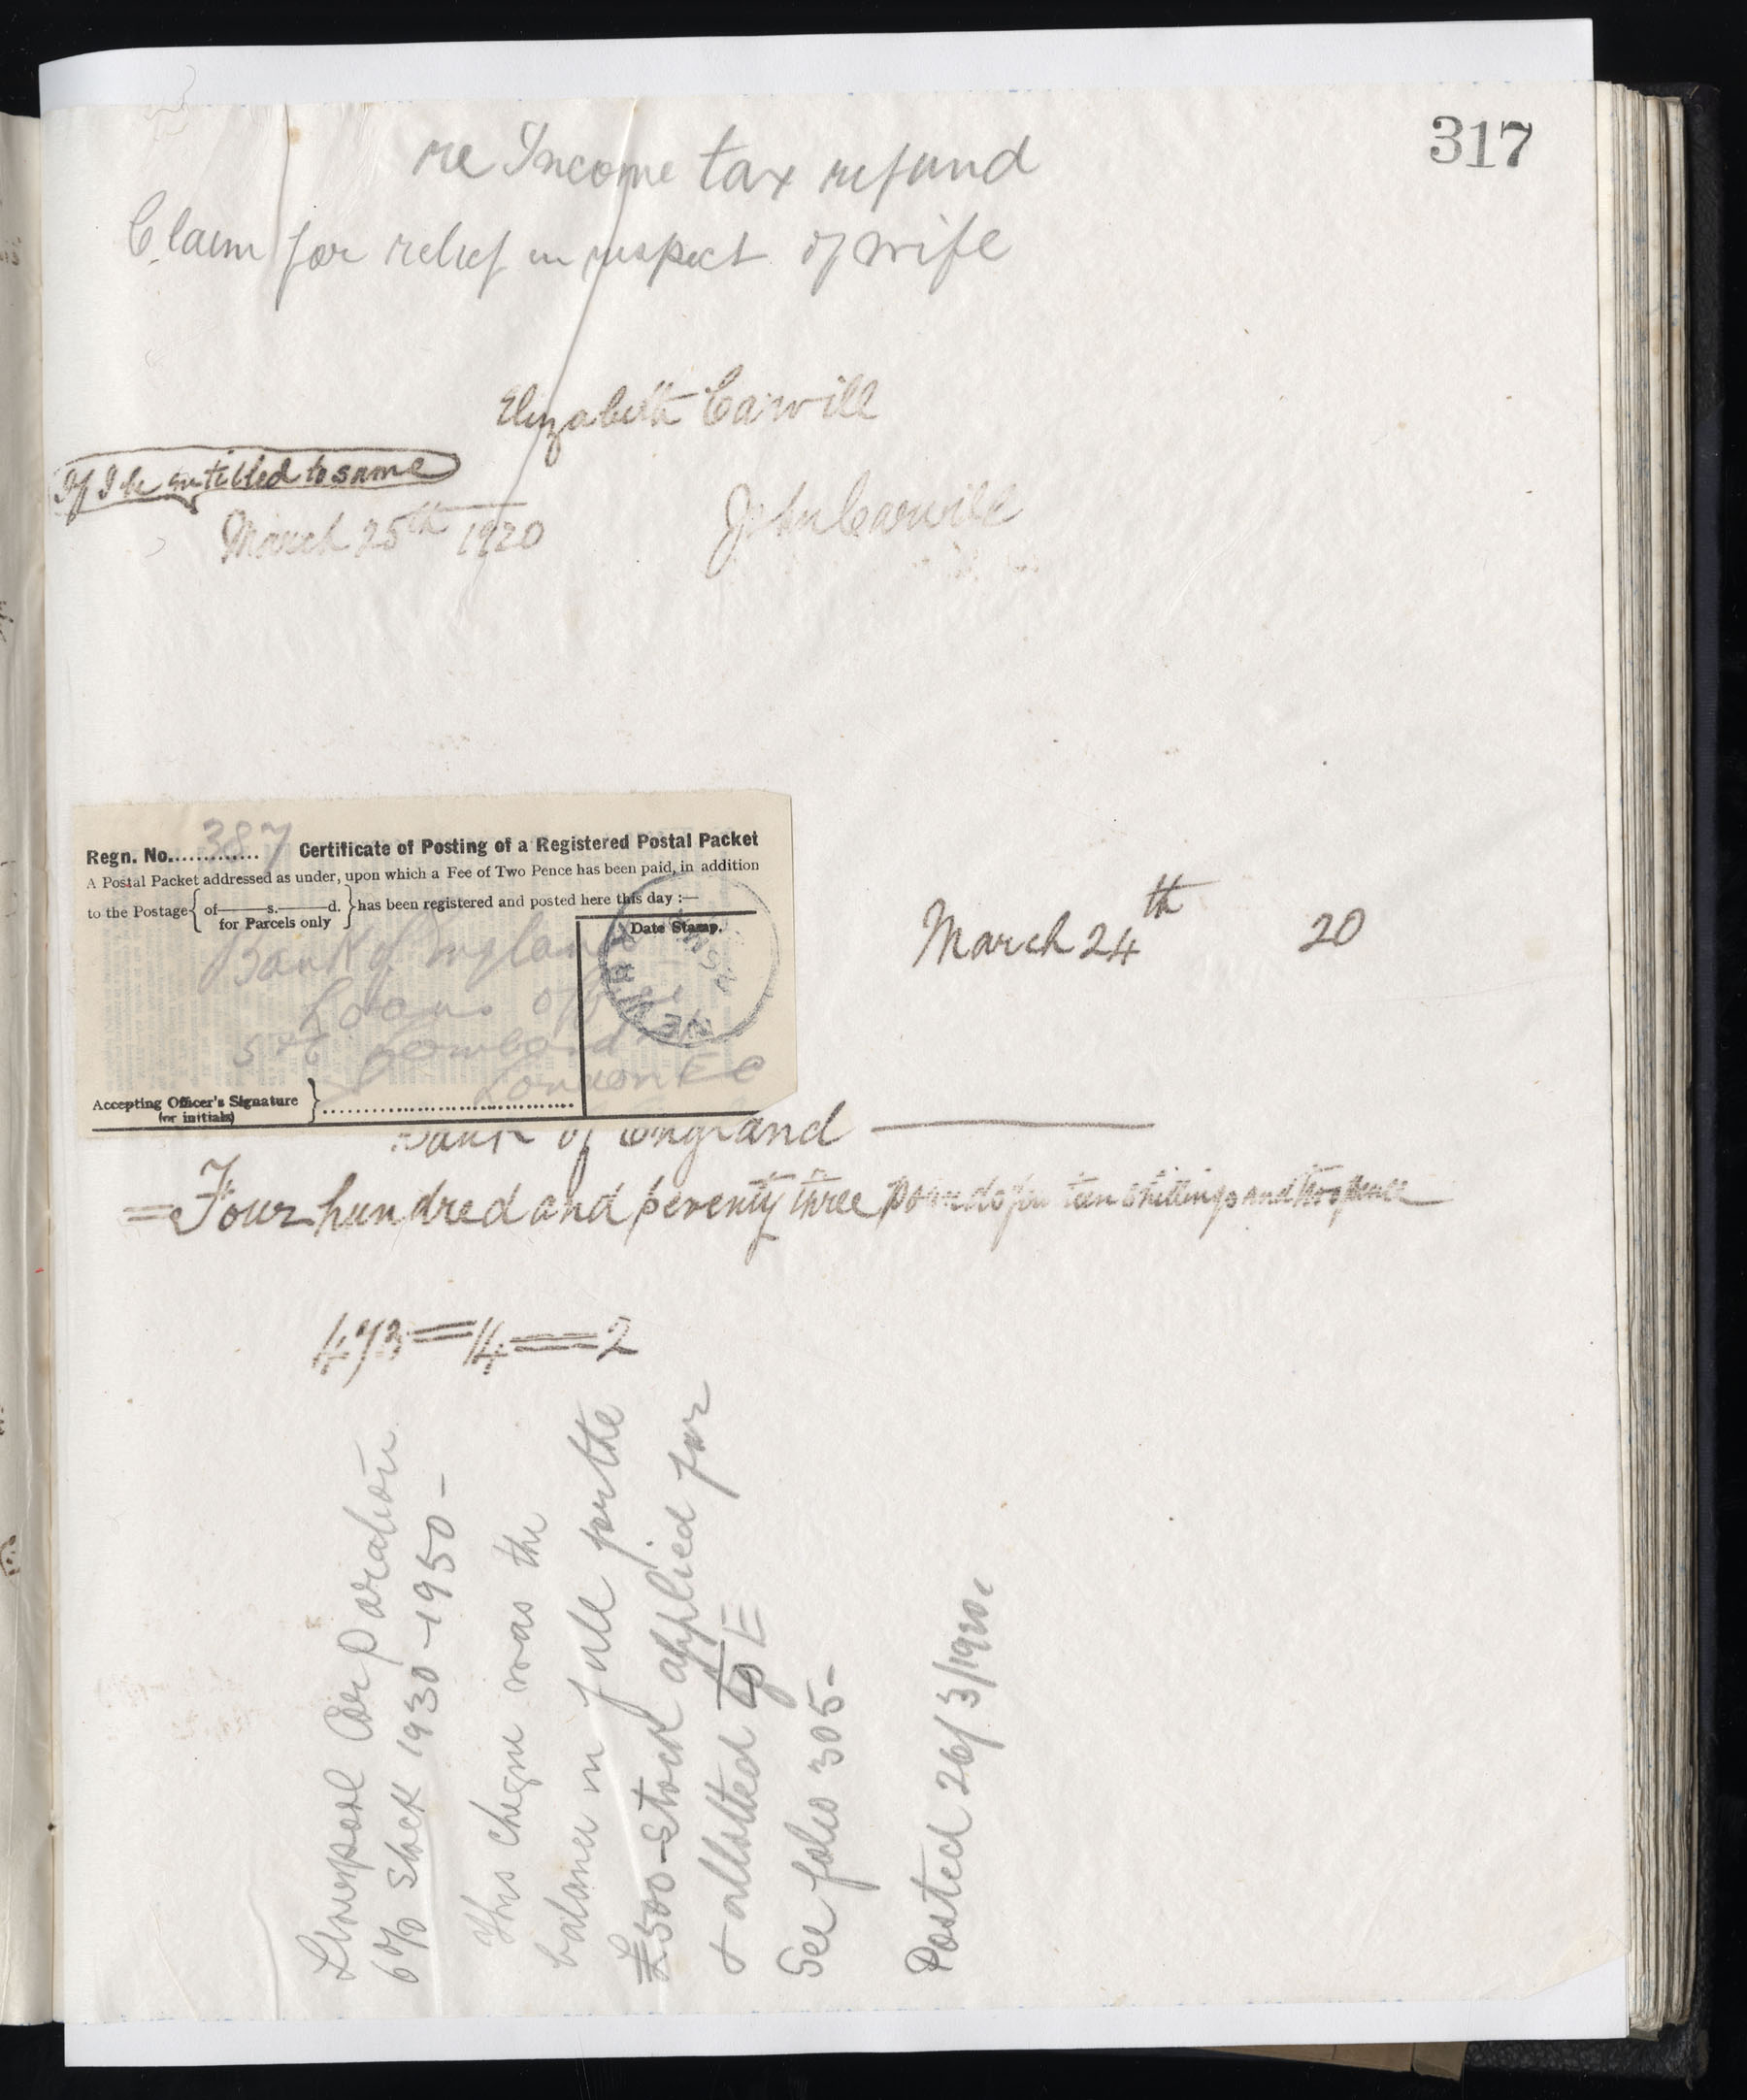 317
re Income tax refund
Claim for relief in respect of wife
Elizabeth Carvill
If I be entitled to same
March 25th 1920
John Carvill
Regn. No. 387 Certificate of Posting of a Registered Postal Packet
A Postal Packet addressed as under, upon which a Fee of Two Pence has been paid, in addition
to the Postage { of——s.——d. for Parcels only } has been registered and posted here this day :—
Date Stamp.
Bank of England
Loans Office
5 & 6 Lombard
London E C
Accepting Officer's Signature (or initials) }
March 24th 20
Bank of England
= Four hundred and seventy three pounds four teen shillings and two pence
473 = 14 = 2
Liverpool Corporation
6% Stock 1930-1950-
This cheque was the
balance in full for the
£500-Stock applied for
& allotted to E
See folio 305-
Posted 26/3/1920.